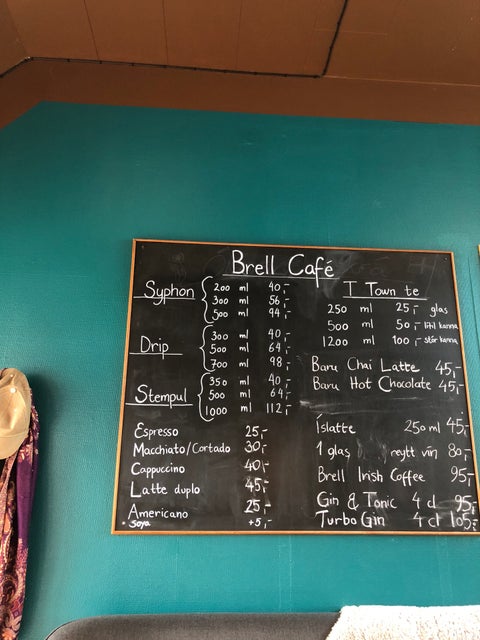 Brell Café
Syphon
200 ml 40,-
300 ml 56,-
500 ml 94,-
Drip
300 ml 40,-
500 ml 64,-
700 ml 98,-
Stempul
350 ml 40,-
500 ml 64,-
1000 ml 112,-
Espresso 25,-
Macchiato/Cortado 30,-
Cappuccino 40,-
Latte duplo 45,-
Americano 25,-
• Soya +5,-
T Town te
250 ml 25,- glas
500 ml 50,- lítil kanna
1200 ml 100,- stór kanna
Baru Chai Latte 45,-
Baru Hot Chocolate 45,-
Íslatte 250 ml 45,-
1 glas reytt vín 80,-
Brell Irish Coffee 95,-
Gin & Tonic 4 cl 95,-
Turbo Gin 4 cl 105,-